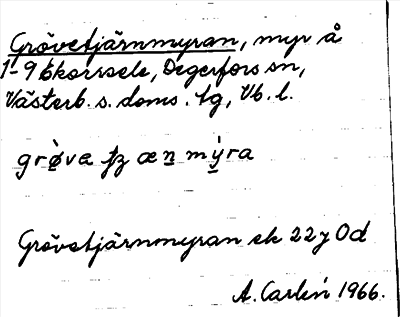 Grövetjärnmyran, myr å
1-9 Ekorrsele, Degerfors sn,
Västerb. s. doms. tg, Vb. l.
Grövetjärnmyran ek 22 J 0d
A. Carlén 1966.